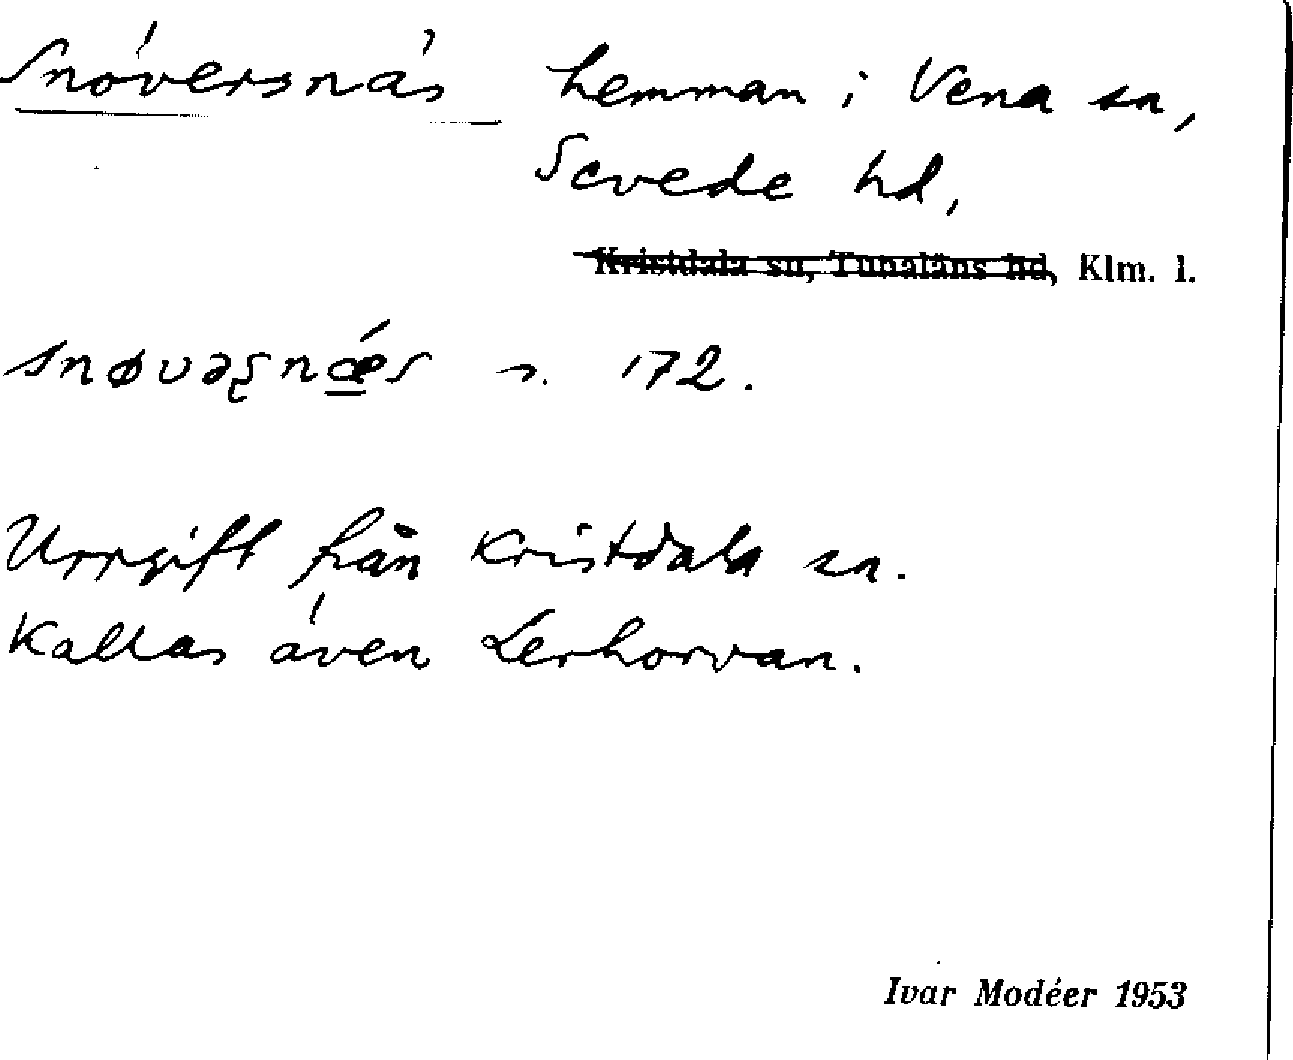 Snöversnäs hemman i Vena sn,
Sevede hd,
Kristdala sn, Tunaläns hd, Klm. l.
snøvəʂnǽs n. 172.
Uppgift från Kristdala sn.
Kallas även Lerhorvan.
Ivar Modéer 1953